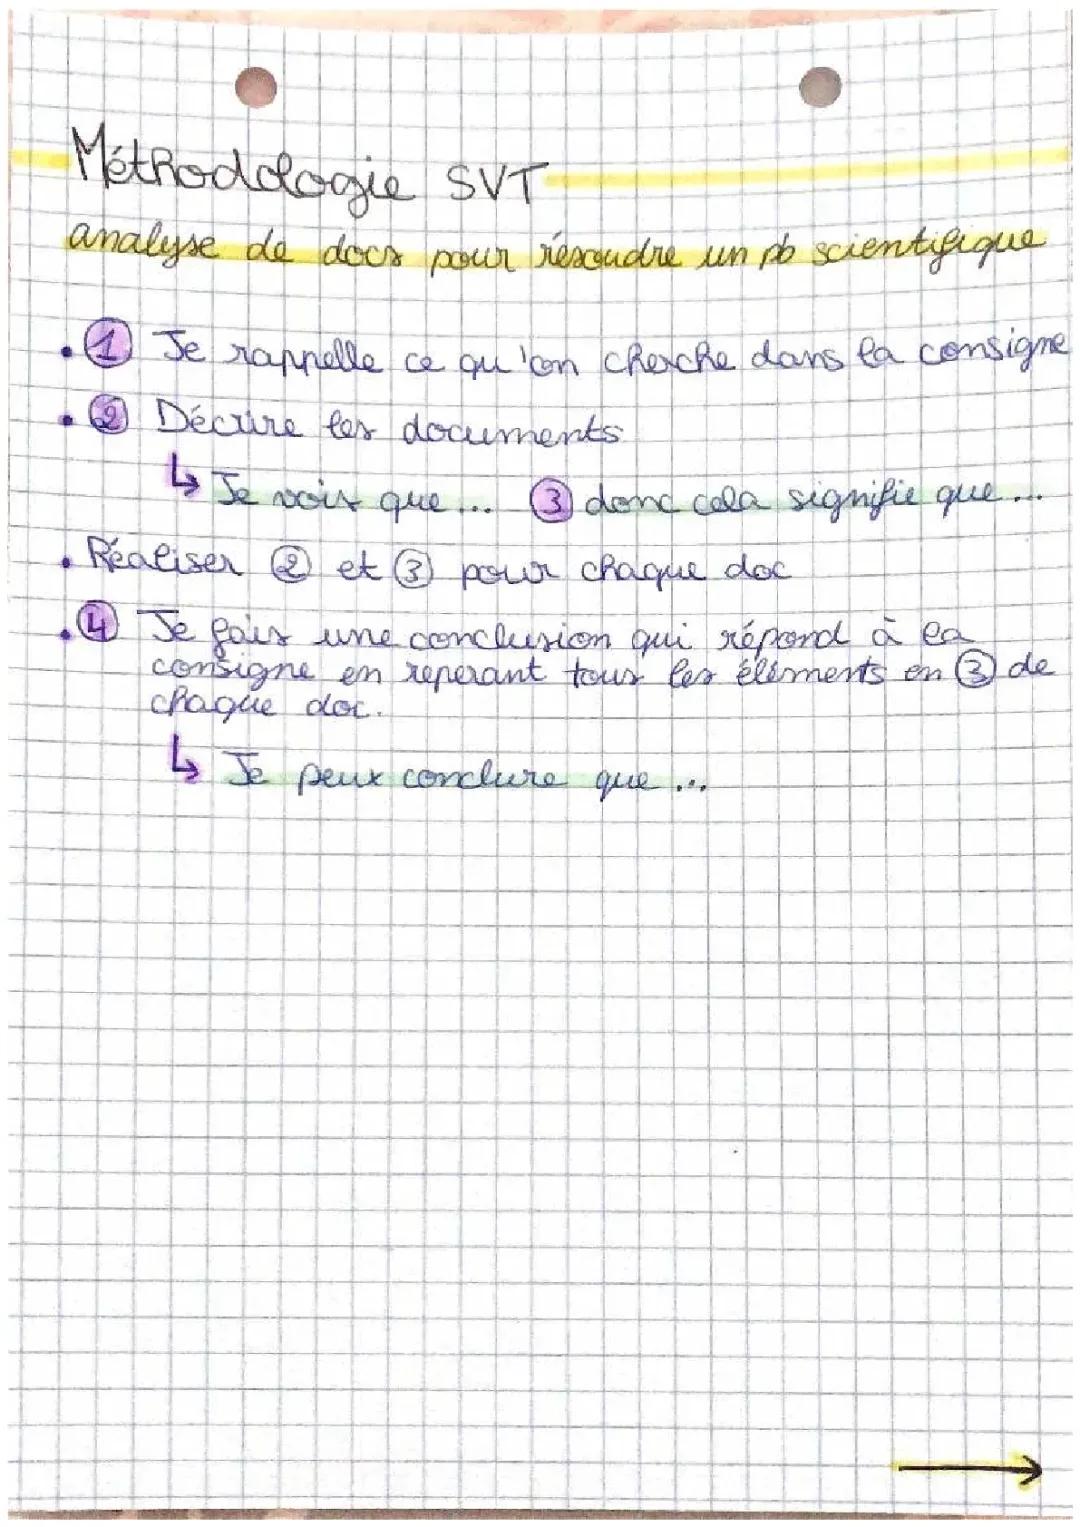 Méthodologie SVT
analyse de docs pour résoudre un pb scientifique
• ① Je rappelle ce qu'on cherche dans la consigne
• ② Décrire les documents
↳ Je vois que... ③ donc cela signifie que...
• Réaliser ② et ③ pour chaque doc
• ④ Je fais une conclusion qui répond à la
consigne en reperant tous les éléments en ③ de
chaque doc.
↳ Je peux conclure que ...